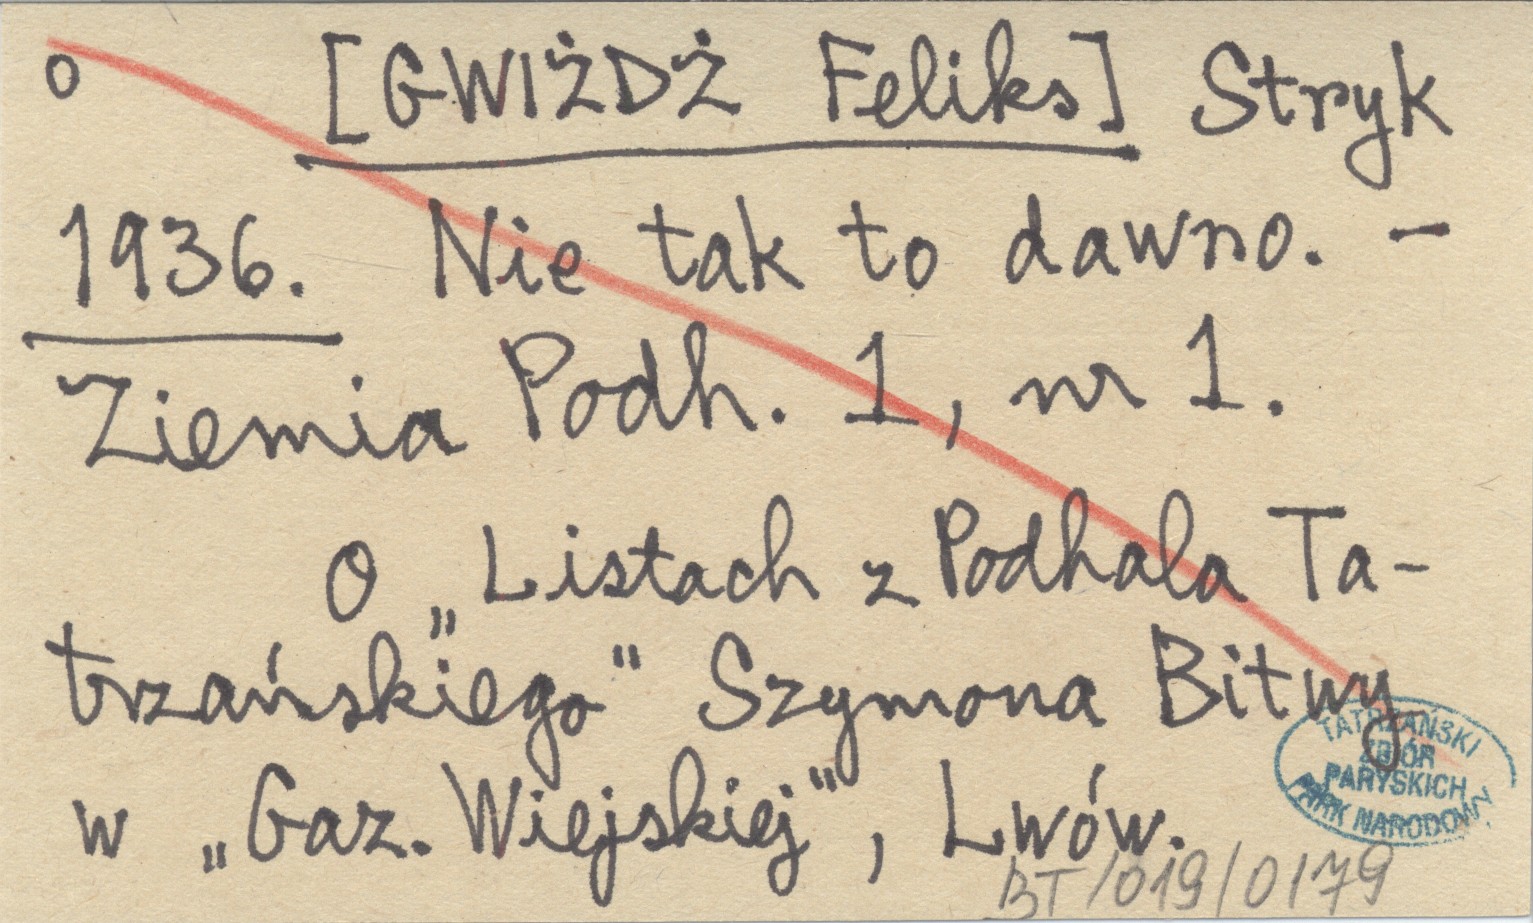 o [GWIŻDŻ Feliks] Stryk
1936. Nie tak to dawno. –
Ziemia Podh. 1, nr 1.
O „Listach z Podhala Ta-
trzańskiego" Szymona Bitwy
w „Gaz. Wiejskiej", Lwów.
TATRZAŃSKI
ZBIÓR
PARYSKICH
PARK NARODOWY
BT/019/0179